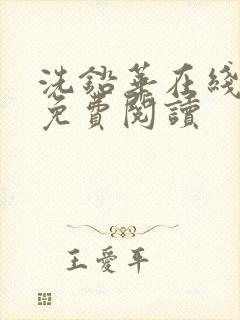 洗鉛華在綫
免費閱讀
王愛平